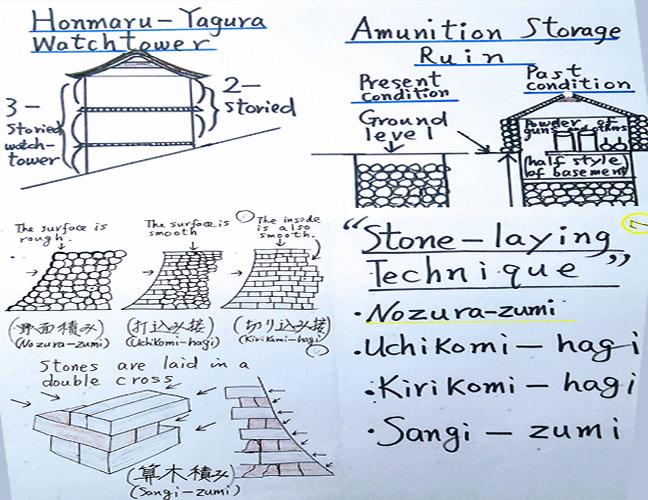 Honmaru-Yagura
Watchtower
3-
Storied
watch-
tower
2-
Storied
Amunition Storage
Ruin
Present
condition
Ground
level
Past
condition
Powder of
guns and others
(half style)
of basement
The surface is
rough.
The surface is
smooth
The inside
is also
smooth.
野面積み
(Nozura-zumi)
(打込み接)
(Uchikomi-hagi)
(切り込み接)
(Kirikomi-hagi)
Stones are laid in a
double cross
(算木積み)
(Sangi-zumi)
"Stone-laying
Technique"
・Nozura-zumi
・Uchikomi-hagi
・Kirikomi-hagi
・Sangi-zumi